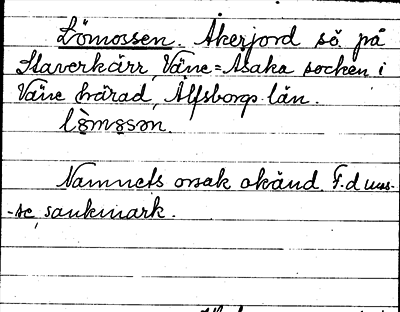 Lömossen. Åkerjord sö. på
Staverkärr, Väne=Åsaka socken i
Väne härad, Älfsborgs län.
lö̀mosən.
Namnets orsak okänd. F. d. mos-
-se, sankmark.